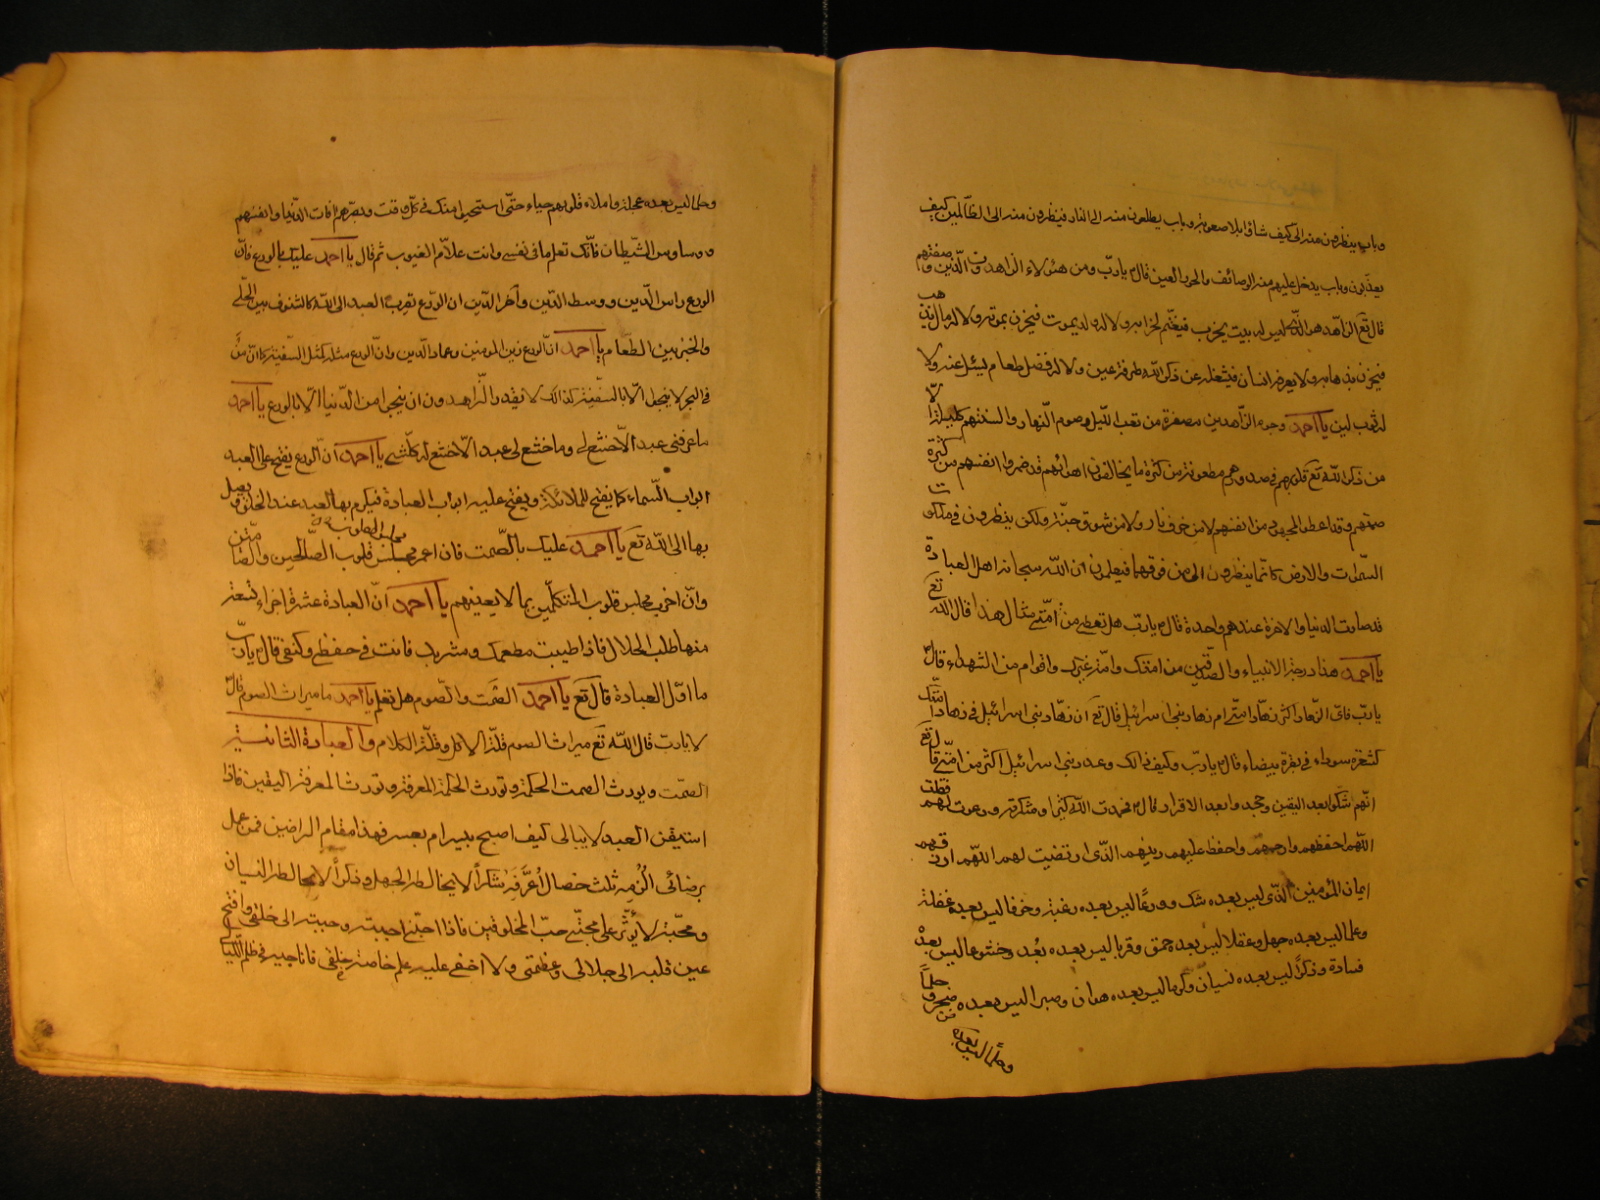 وباب ينظرون منه الىّ كيف شاؤا بلا صعوبة وباب يطلعون منه الى النار فينظرون منه الى الظّالمين كيف
يعذّبون وباب يدخل عليهم منه الوصائف والحور العين قال يا ربّ ومن هؤلاء الزاهدون الّذين وصفتهم
قال تع الزاهد هو الّذى ليس له بيت يخرب فيغتم لخرابه ولا له ولد يموت فيحزن بموته ولا له مال يذهب
فيحزن بذهابه ولا يعرفه انسان فيشغله عن ذكر اللّه طرفة عين ولا له فضل طعام يسئل عنه ولا
له ثوب لين يا احمد وجوه الزاهدين مصفرة من تعب اللّيل وصوم النّهار والسنتهم كليلة الّا
من ذكر اللّه تع قلوبهم فى صدورهم مطعونة من كثرة ما يخالفون اهوائهم قد ضمروا انفسهم من كثرة
صمتهم وقد اعطوا المجهود من انفسهم لا من خوف نار ولا من شوق جنّة ولكن ينظرون فى ملكوت
السموات والارض كانّما ينظرون الى من فوقها فيعلمون ان اللّه سبحانه اهل العبادة
قد صارت الدنيا والاخرة عندهم واحدة قال يا ربّ هل تعطى من امّتى مثال هذا قال اللّه تع
يا احمد هذا درجة الانبياء والصدّيقين من امتك وامّة غيرك واقوام من الشهداء قال
يا ربّ فاىّ الزهاد اكثر زهّاد امّتى ام زهاد بنى اسرائيل قال تع ان زهّاد بنى اسرائيل فى زهاد امّتك
كشعرة سوداء فى بقرة بيضاء قال يا ربّ وكيف ذالك وعدد بنى اسرائيل اكثر من امّتى قال تع
انّهم شكّوا بعد اليقين وجحدوا بعد الاقرار قال محمدت اللّه كثيرا وشكرته ودعوت لهم فقلت
اللّهم احفظهم وارحمهم واحفظ عليهم دينهم الّذى ارتضيت لهم اللّهم ارزقهم
ايمان المؤمنين الّذى ليس بعده شك وورعًا ليس بعده رغبة وخوفا ليس بعده غفلة
وعلما ليس بعده جهل وعقلا ليس بعده حمق وقربا ليس بعده بُعد وخشوعا ليس بعدْه
قساوة وذكرًا ليس بعده نسيان وكرما ليس بعده هوان وصبرا ليس بعده ضجر وحلمًا
وحلمًا ليس بعده
وحلما ليس بعده عجلة واملاء قلوبهم حياء حتّى استحيوا منك فى كلّ وقت وتبصّرهم افات الدّنيا وانفسهم
ووساوس الشّيطان فانّك تعلم ما فى نفسى وانت علاّم الغيوب ثم قال يا احمد عليك بالورع فانّ
الورع راس الدّين ووسط الدّين وآخر الدّين ان الورع تقرب العبد الى اللّه كالشنوف بين الحلى
والخبز بين الطعام يا احمد انّ الورع زين المؤمنين وعماد الدّين وانّ الورع مثله كمثل السّفينة كما انّ من
فى البحر لا ينجوا الّا بالسّفينة كذالك لا يقدر الزّاهدون ان ينجوا من الدّنيا الّا بالورع يا احمد
ما عرفنى عبد الّا خشع لى وما خشع لى عبد الّا خشع له كلّ شىء يا احمد انّ الورع يفتح على العبد
ابواب السّماء كما يفتح للملائكة ويفتح عليه ابواب العبادة فيكرم بها العبد عند الخلق ويصل
بها الى اللّه تع يا احمد عليك بالصّمت فان اعمر مجلس قلوب الصّالحين والصّامتين
وانّ اخرب مجلس قلوب المتكلّمين بما لا يعنيهم يا احمد انّ العبادة عشرة اجزاء تسعة
منها طلب الحلال فاذا اطيبت مطعمك ومشربك فانت فى حفظى وكنفى قال يا ربّ
ما اوّل العبادة قال تع يا احمد الصّمت والصّوم هل تعلم يا احمد ما ميراث الصوم قال
لا يا ربّ قال اللّه تع ميراث الصوم قلّة الاكل وقلّة الكلام والعبادة الثانية
الصّمت ويورث الصمت الحكمة وتورث الحكمة المعرفة وتورث المعرفة اليقين فاذا
استيقن العبد لا يبالى كيف اصبح بيسر ام بعسر فهذا مقام الراضين فمن عمل
برضائى الزمه ثلث خصال اُعرّفه شكراً لا يخالطه الجهل وذكراً لا يخالطه النسيان
ومحبّة لا يؤثّر على محبّتى حبّ المخلوقين فاذا احبّنى احببته وحببته الى خلقى وافتح
عين قلبه الى جلالى وعظمتى ولا اخفى عليه علم خاصة خلقى فاناجيه فى ظلم اللّيل